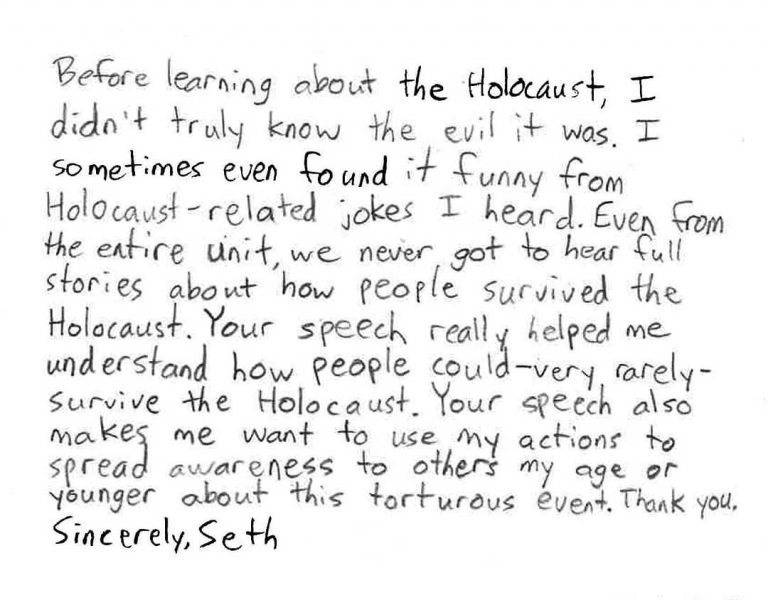 Before learning about the Holocaust, I
didn't truly know the evil it was. I
sometimes even found it funny from
Holocaust-related jokes I heard. Even from
the entire unit, we never got to hear full
stories about how people survived the
Holocaust. Your speech really helped me
understand how people could-very rarely-
survive the Holocaust. Your speech also
makes me want to use my actions to
spread awareness to others my age or
younger about this torturous event. Thank you.
Sincerely, Seth